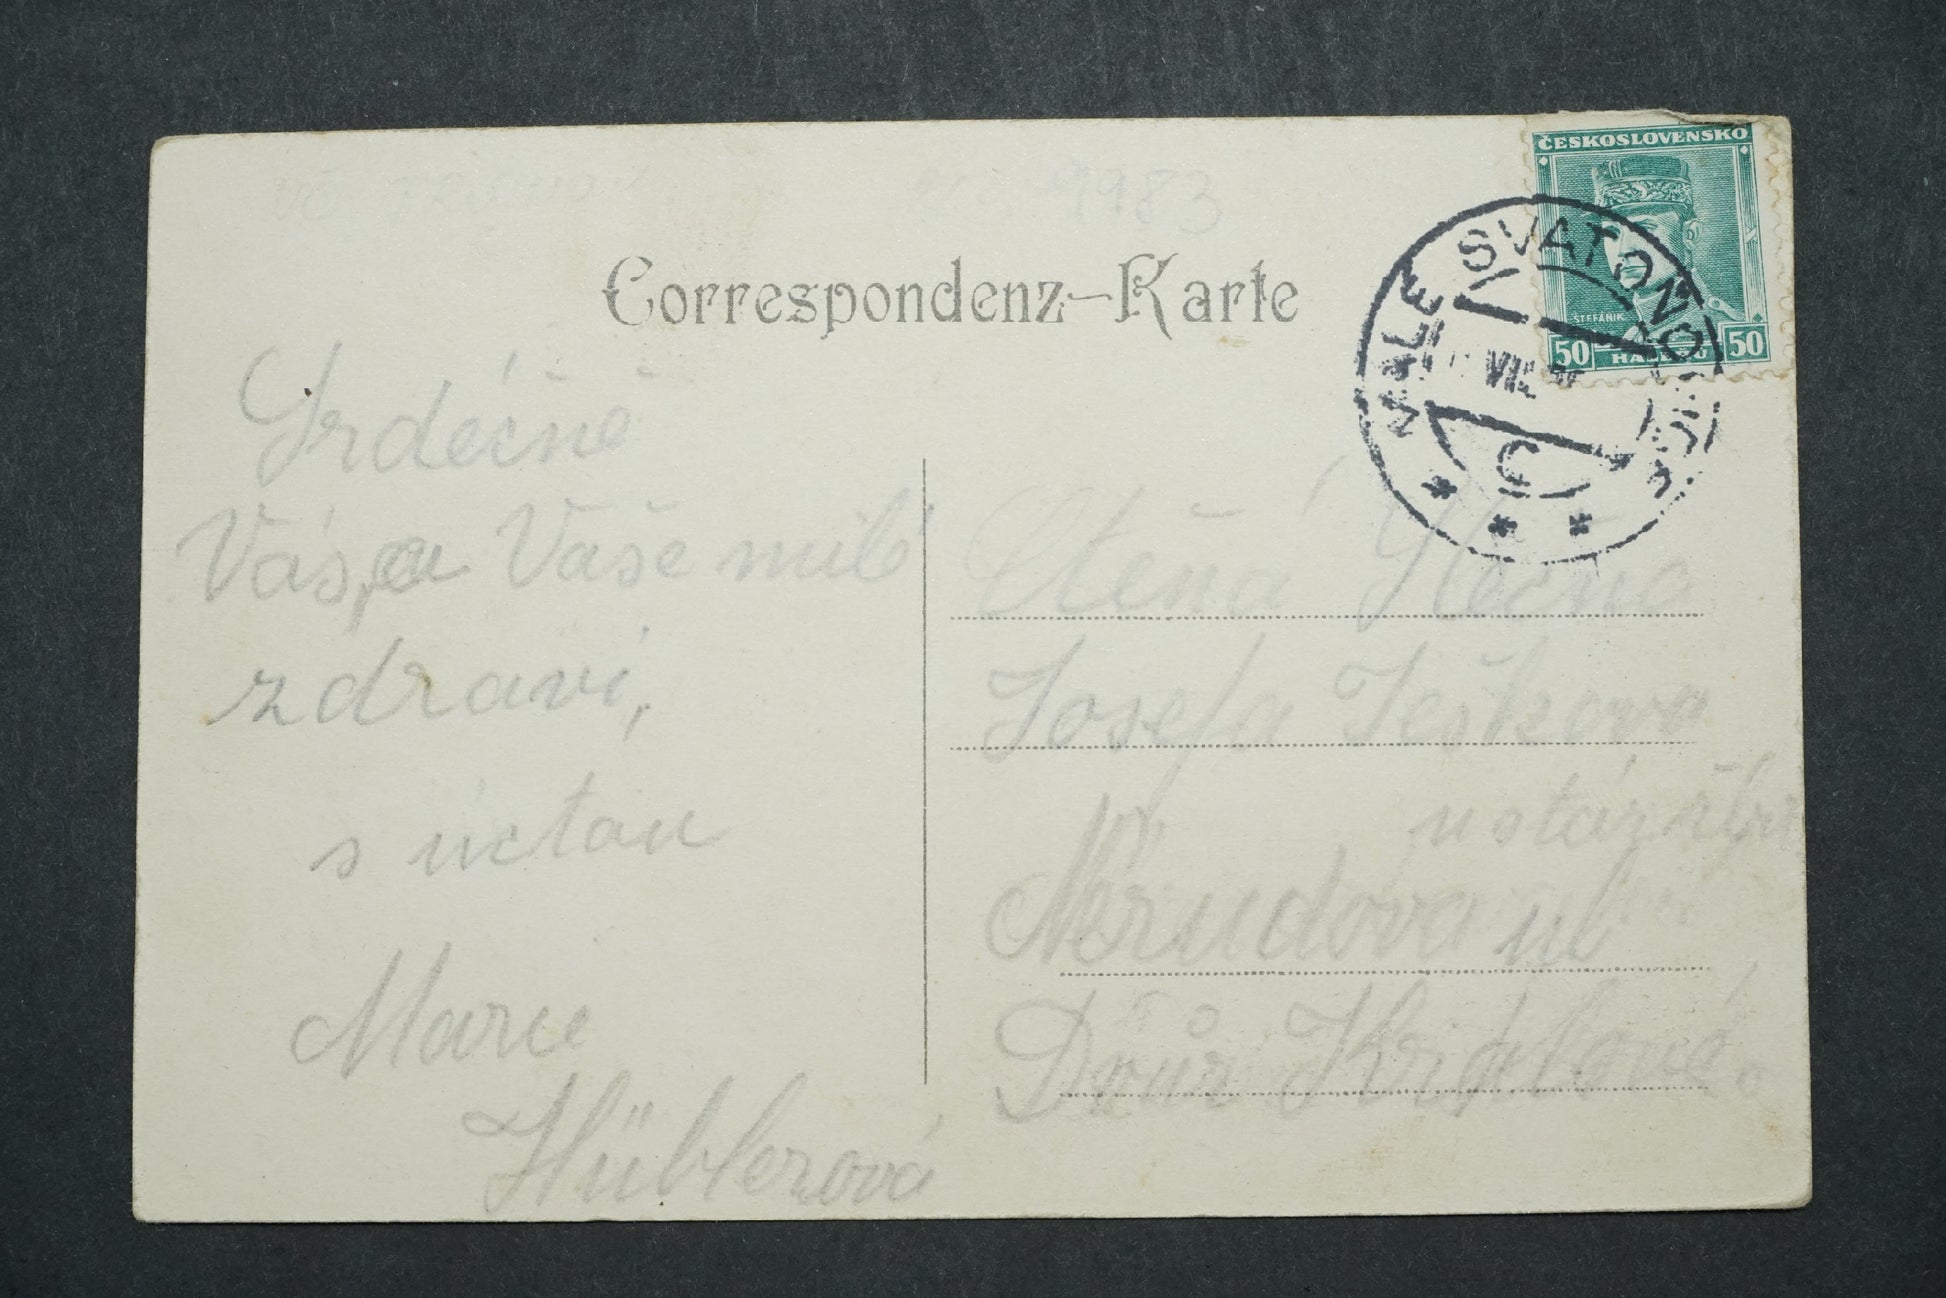 9983
ČESKOSLOVENSKO
ŠTEFÁNIK
50 HALÉŘŮ 50
MALÉ SVATOŇO
VII
C
Correspondenz-Karte
Srdečně
Vás, a Vaše milé
zdraví,
s úctou
Marie
Hüblerová
Ctěná Slečna
Josefa Ješkova
Nerudova ul
Dvůr Králové.